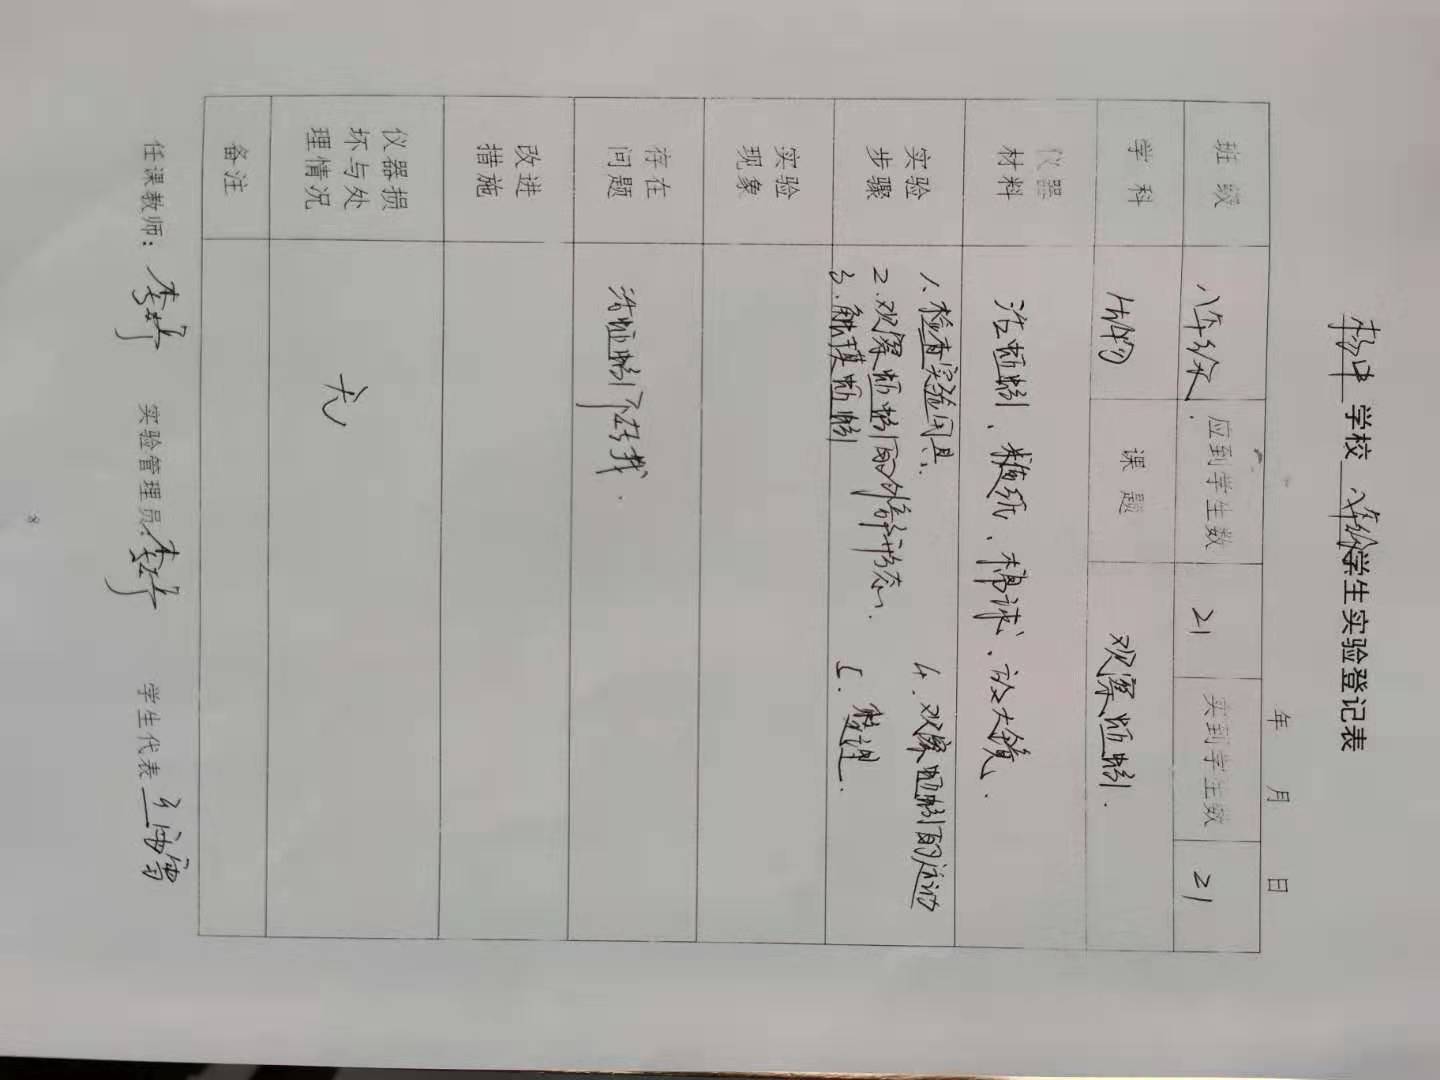 杨中学校八年级学生实验登记表
年 月 日
班级 八年级 应到学生数 21 实到学生数 21
学科 生物 课题 观察蚯蚓.
仪器材料 活蚯蚓、糙纸、棉球、放大镜.
实验步骤 1.检查实验用具.
2.观察蚯蚓的外部形态.
3.触摸蚯蚓
4.观察蚯蚓的运动
5.整理.
实验现象
存在问题 活蚯蚓不好找.
改进措施
仪器损坏与处理情况 无
备注
任课教师: 李婷 实验管理员: 李婷 学生代表
8